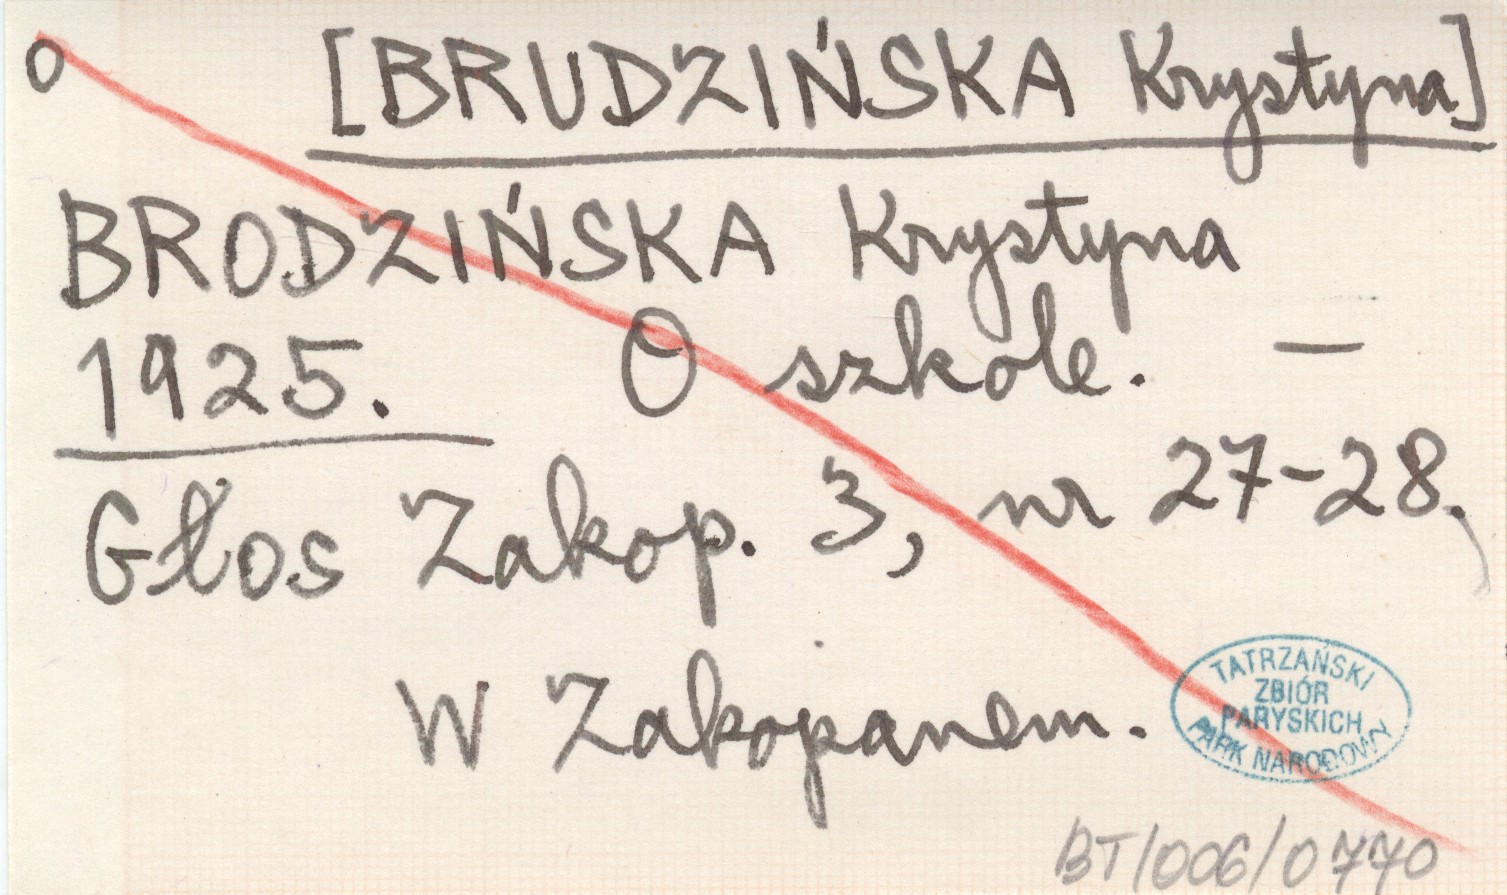 o [BRUDZIŃSKA Krystyna]
BRODZIŃSKA Krystyna
1925. O szkole. —
Głos Zakop. 3, nr 27-28.
W Zakopanem.
TATRZAŃSKI
ZBIÓR
PARYSKICH
PARK NARODOWY
BT/006/0770